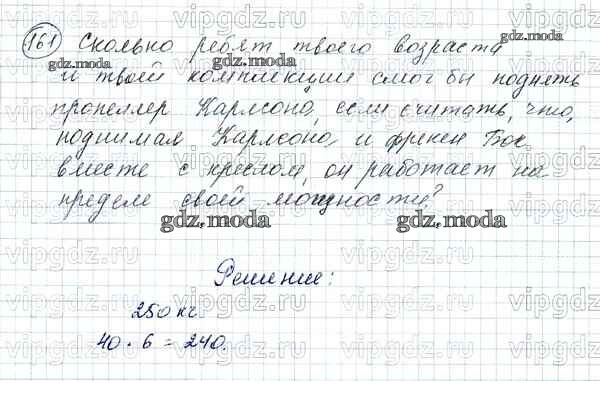 161 Сколько ребят твоего возраста
и твоей комплекции смог бы поднять
пропеллер Карлсона, если считать, что,
поднимая Карлсона, и фрекен Бок
вместе с креслом, он работает на
пределе своей мощности?
Решение:
250 кг.
40 · 6 = 240.
vipgdz.ru
gdz.moda